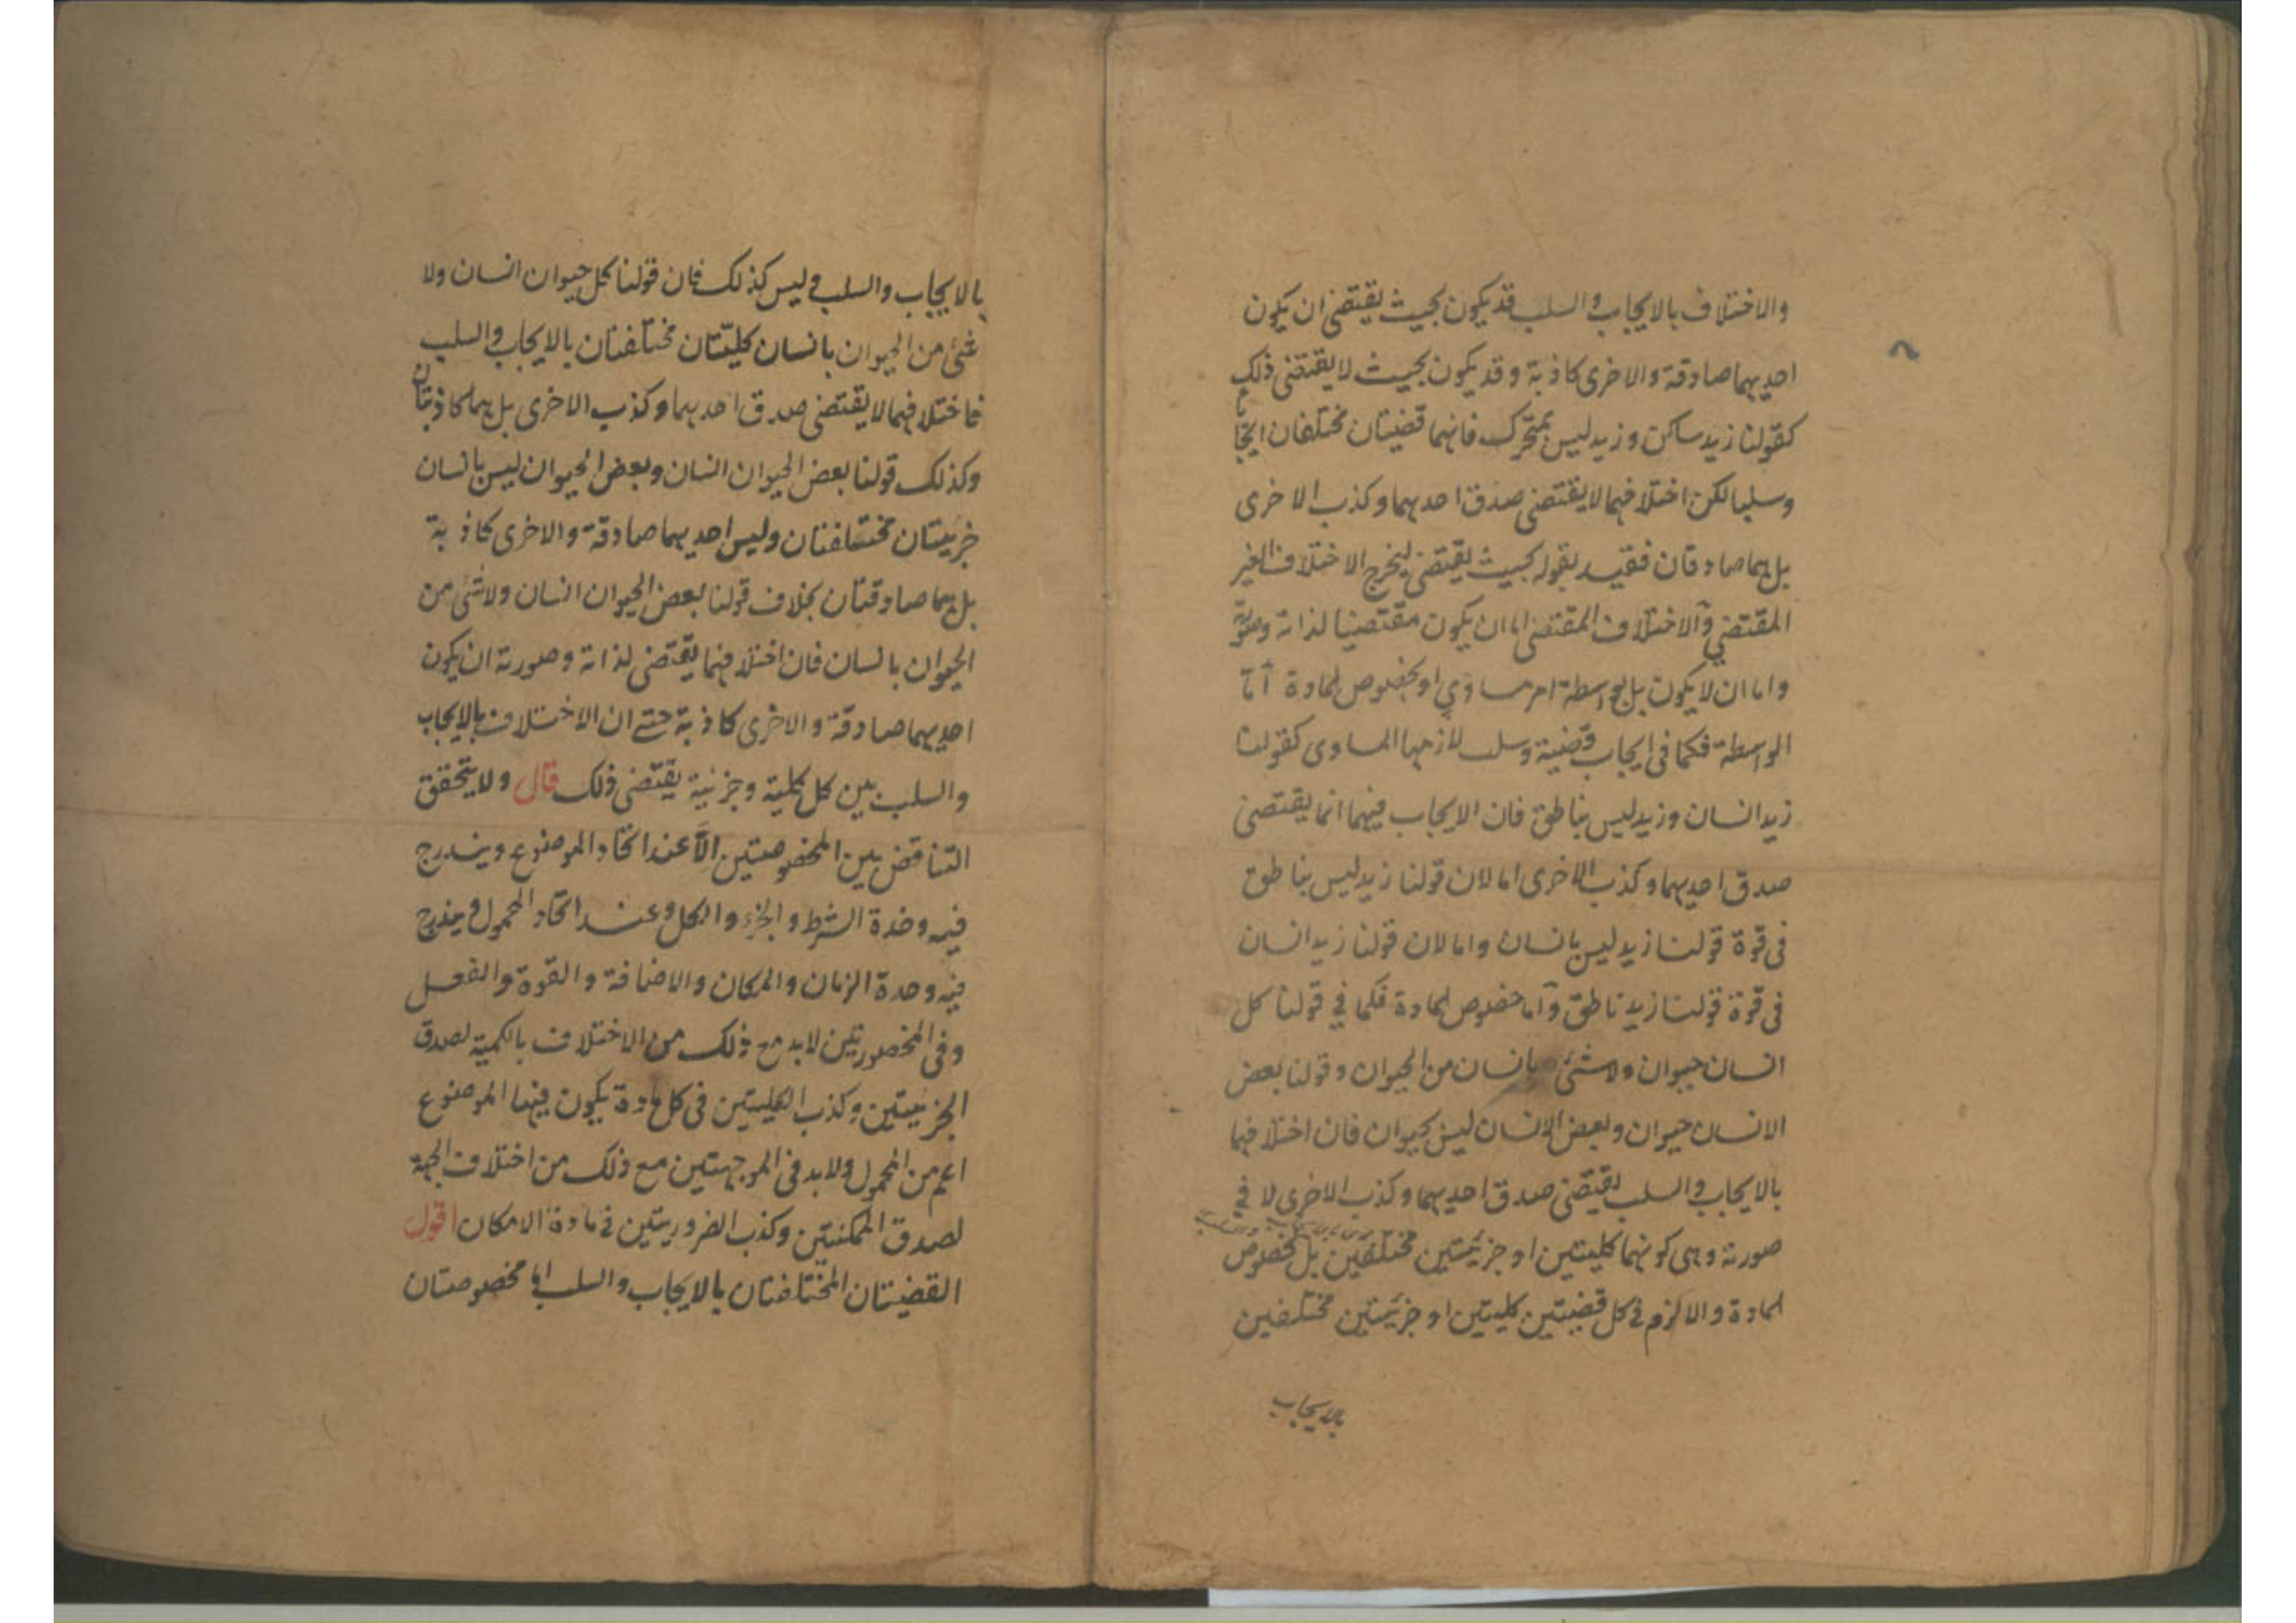 والاختلاف بالايجاب والسلب قد يكون بحيث يقتضى ان يكون
احديهما صادقة والاخرى كاذبة وقد يكون بحيث لا يقتضى ذلك
كقولنا زيد ساكن وزيد ليس بمتحرك فانهما قضيتان مختلفتان ايجابا
وسلبا لكن اختلافهما لا يقتضى صدق احديهما وكذب الاخرى
بل هما صادقتان فقيد بقوله بحيث يقتضى ليخرج الاختلاف الغير
المقتضى والاختلاف المقتضى اما ان يكون مقتضيا لذاته وصورته
واما ان لا يكون بل بواسطة امر مساوى او بخصوص المادة اما
الواسطة فكما فى ايجاب قضية وسلب لازمها المساوى كقولنا
زيد انسان وزيد ليس بناطق فان الايجاب فيهما انما يقتضى
صدق احديهما وكذب الاخرى اما لان قولنا زيد ليس بناطق
فى قوة قولنا زيد ليس بانسان واما لان قولنا زيد انسان
فى قوة قولنا زيد ناطق واما خصوص المادة فكما في قولنا كل
انسان حيوان ولا شئ بانسان من الحيوان وقولنا بعض
الانسان حيوان وبعض الانسان ليس بحيوان فان اختلافهما
بالايجاب والسلب يقتضى صدق احديهما وكذب الاخرى لا في
صورته وهى كونهما كليتين او جزئيتين مختلفتين بل بخصوص
المادة والا لزم فى كل قضيتين كليتين او جزئيتين مختلفتين
بالايجاب
بالايجاب والسلب وليس كذلك فان قولنا كل حيوان انسان ولا
شئ من الحيوان بانسان كليّتان مختلفتان بالايجاب والسلب
فاختلافهما لا يقتضى صدق احديهما وكذب الاخرى بل هما كاذبتان
وكذلك قولنا بعض الحيوان انسان وبعض الحيوان ليس بانسان
جزئيتان مختلفتان وليس احديهما صادقة والاخرى كاذبة
بل هما صادقتان بخلاف قولنا بعض الحيوان انسان ولا شئ من
الحيوان بانسان فان اختلافهما يقتضى لذاته وصورته ان يكون
احديهما صادقة والاخرى كاذبة حتى ان الاختلاف بالايجاب
والسلب بين كل كلية وجزئية يقتضى ذلك قال ولا يتحقق
التناقض بين المخصوصتين الّا عند اتحاد الموضوع ويندرج
فيه وحدة الشرط والجزء والكل وعند اتحاد المحمول ويندرج
فيه وحدة الزمان والمكان والاضافة والقوة والفعل
وفى المحصورتين لا بد مع ذلك من الاختلاف بالكمية لصدق
الجزئيتين وكذب الكليتين فى كل مادة يكون فيها الموضوع
اعم من المحمول ولا بد فى الموجهتين مع ذلك من اختلاف الجهة
لصدق الممكنتين وكذب الضروريتين فى مادة الامكان اقول
القضيتان المختلفتان بالايجاب والسلب اما مخصوصتان